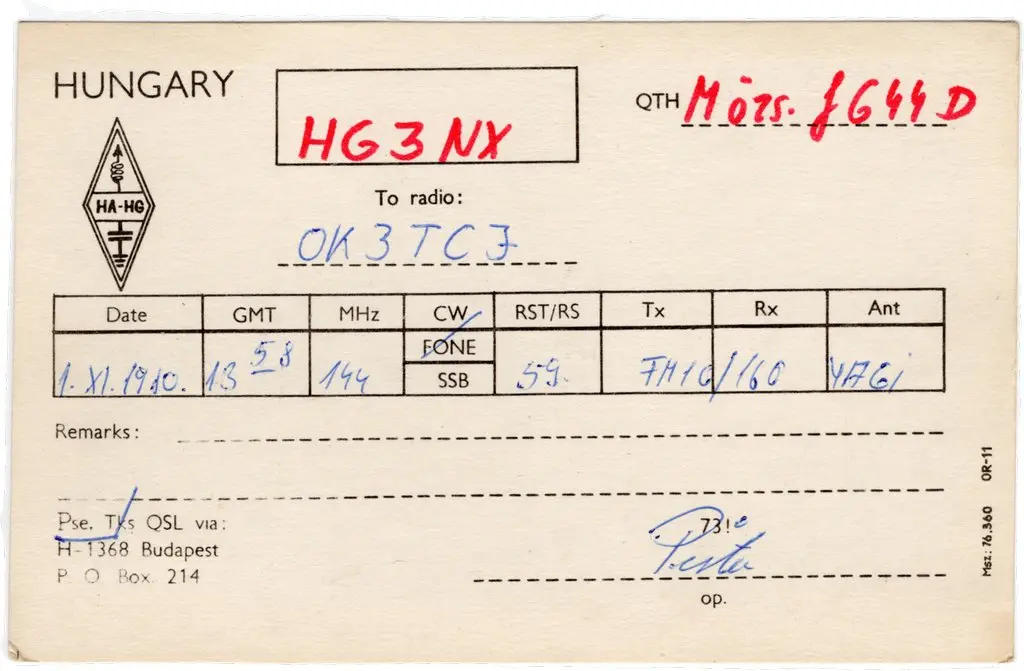 HUNGARY
HG3NX
QTH Mözs. JG44D
HA-HG
To radio:
OK3TCJ
Date GMT MHz CW RST/RS Tx Rx Ant
FONE
1. XI. 1980. 13 58 144 59. FM10/160 YAGi
SSB
Remarks:
Pse. Tks QSL via:
H-1368 Budapest
P. O. Box. 214
73!
Pista
op.
Msz.: 76.360 OR-11